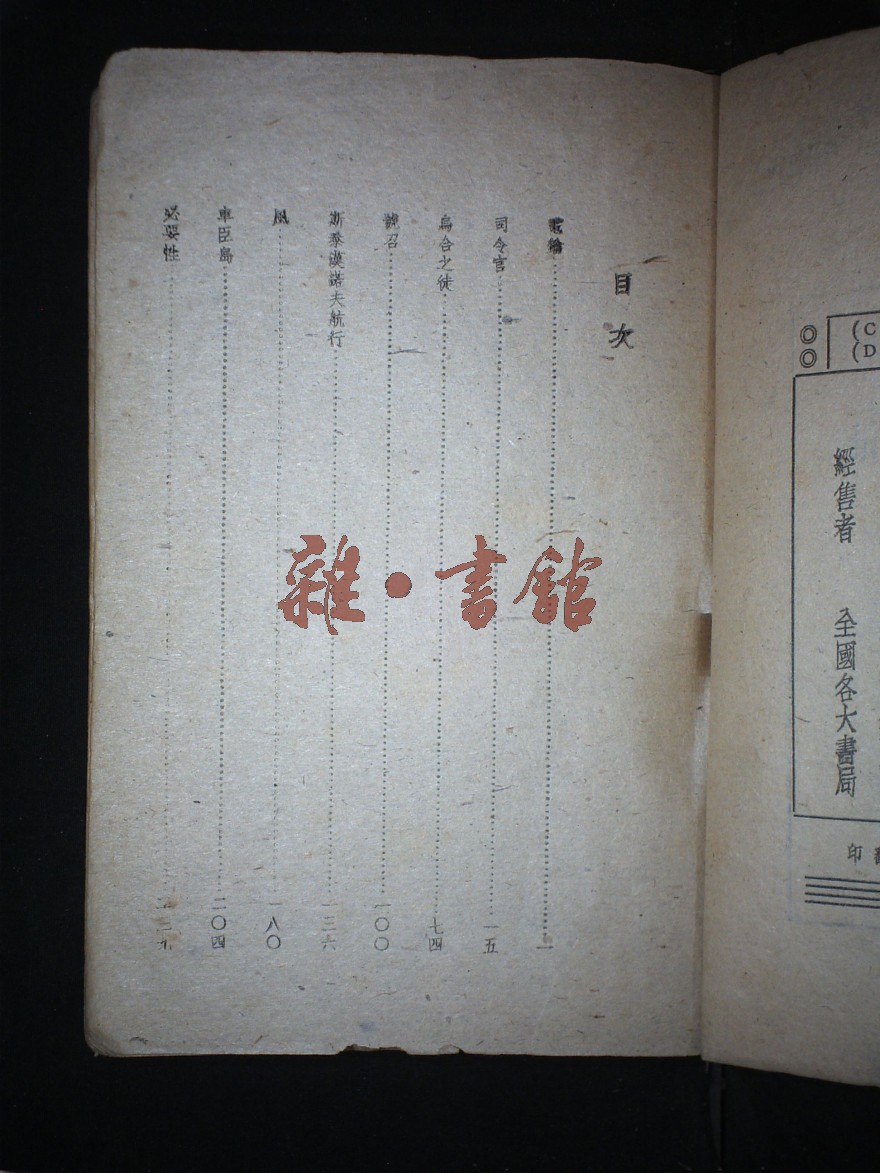 (C
(D
◎
◎
經售者 全國各大書局
印
目次
電輪……一
司令官……一五
烏合之徒……七四
號召……一〇〇
斯泰漢諾夫航行……一三六
風……一八〇
車臣島……二〇四
必要性……
雜·書館